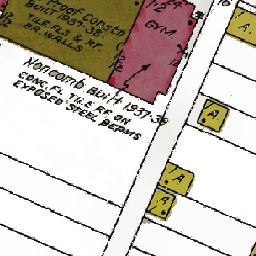 Proof Const'n
BUILT 1937-38
TILE FLS & RF.
BR. WALLS
GYM
Noncomb. Built 1937-38
CONC. FL. TILE RF. ON
EXPOSED STEEL BEAMS
A.
A
A
A